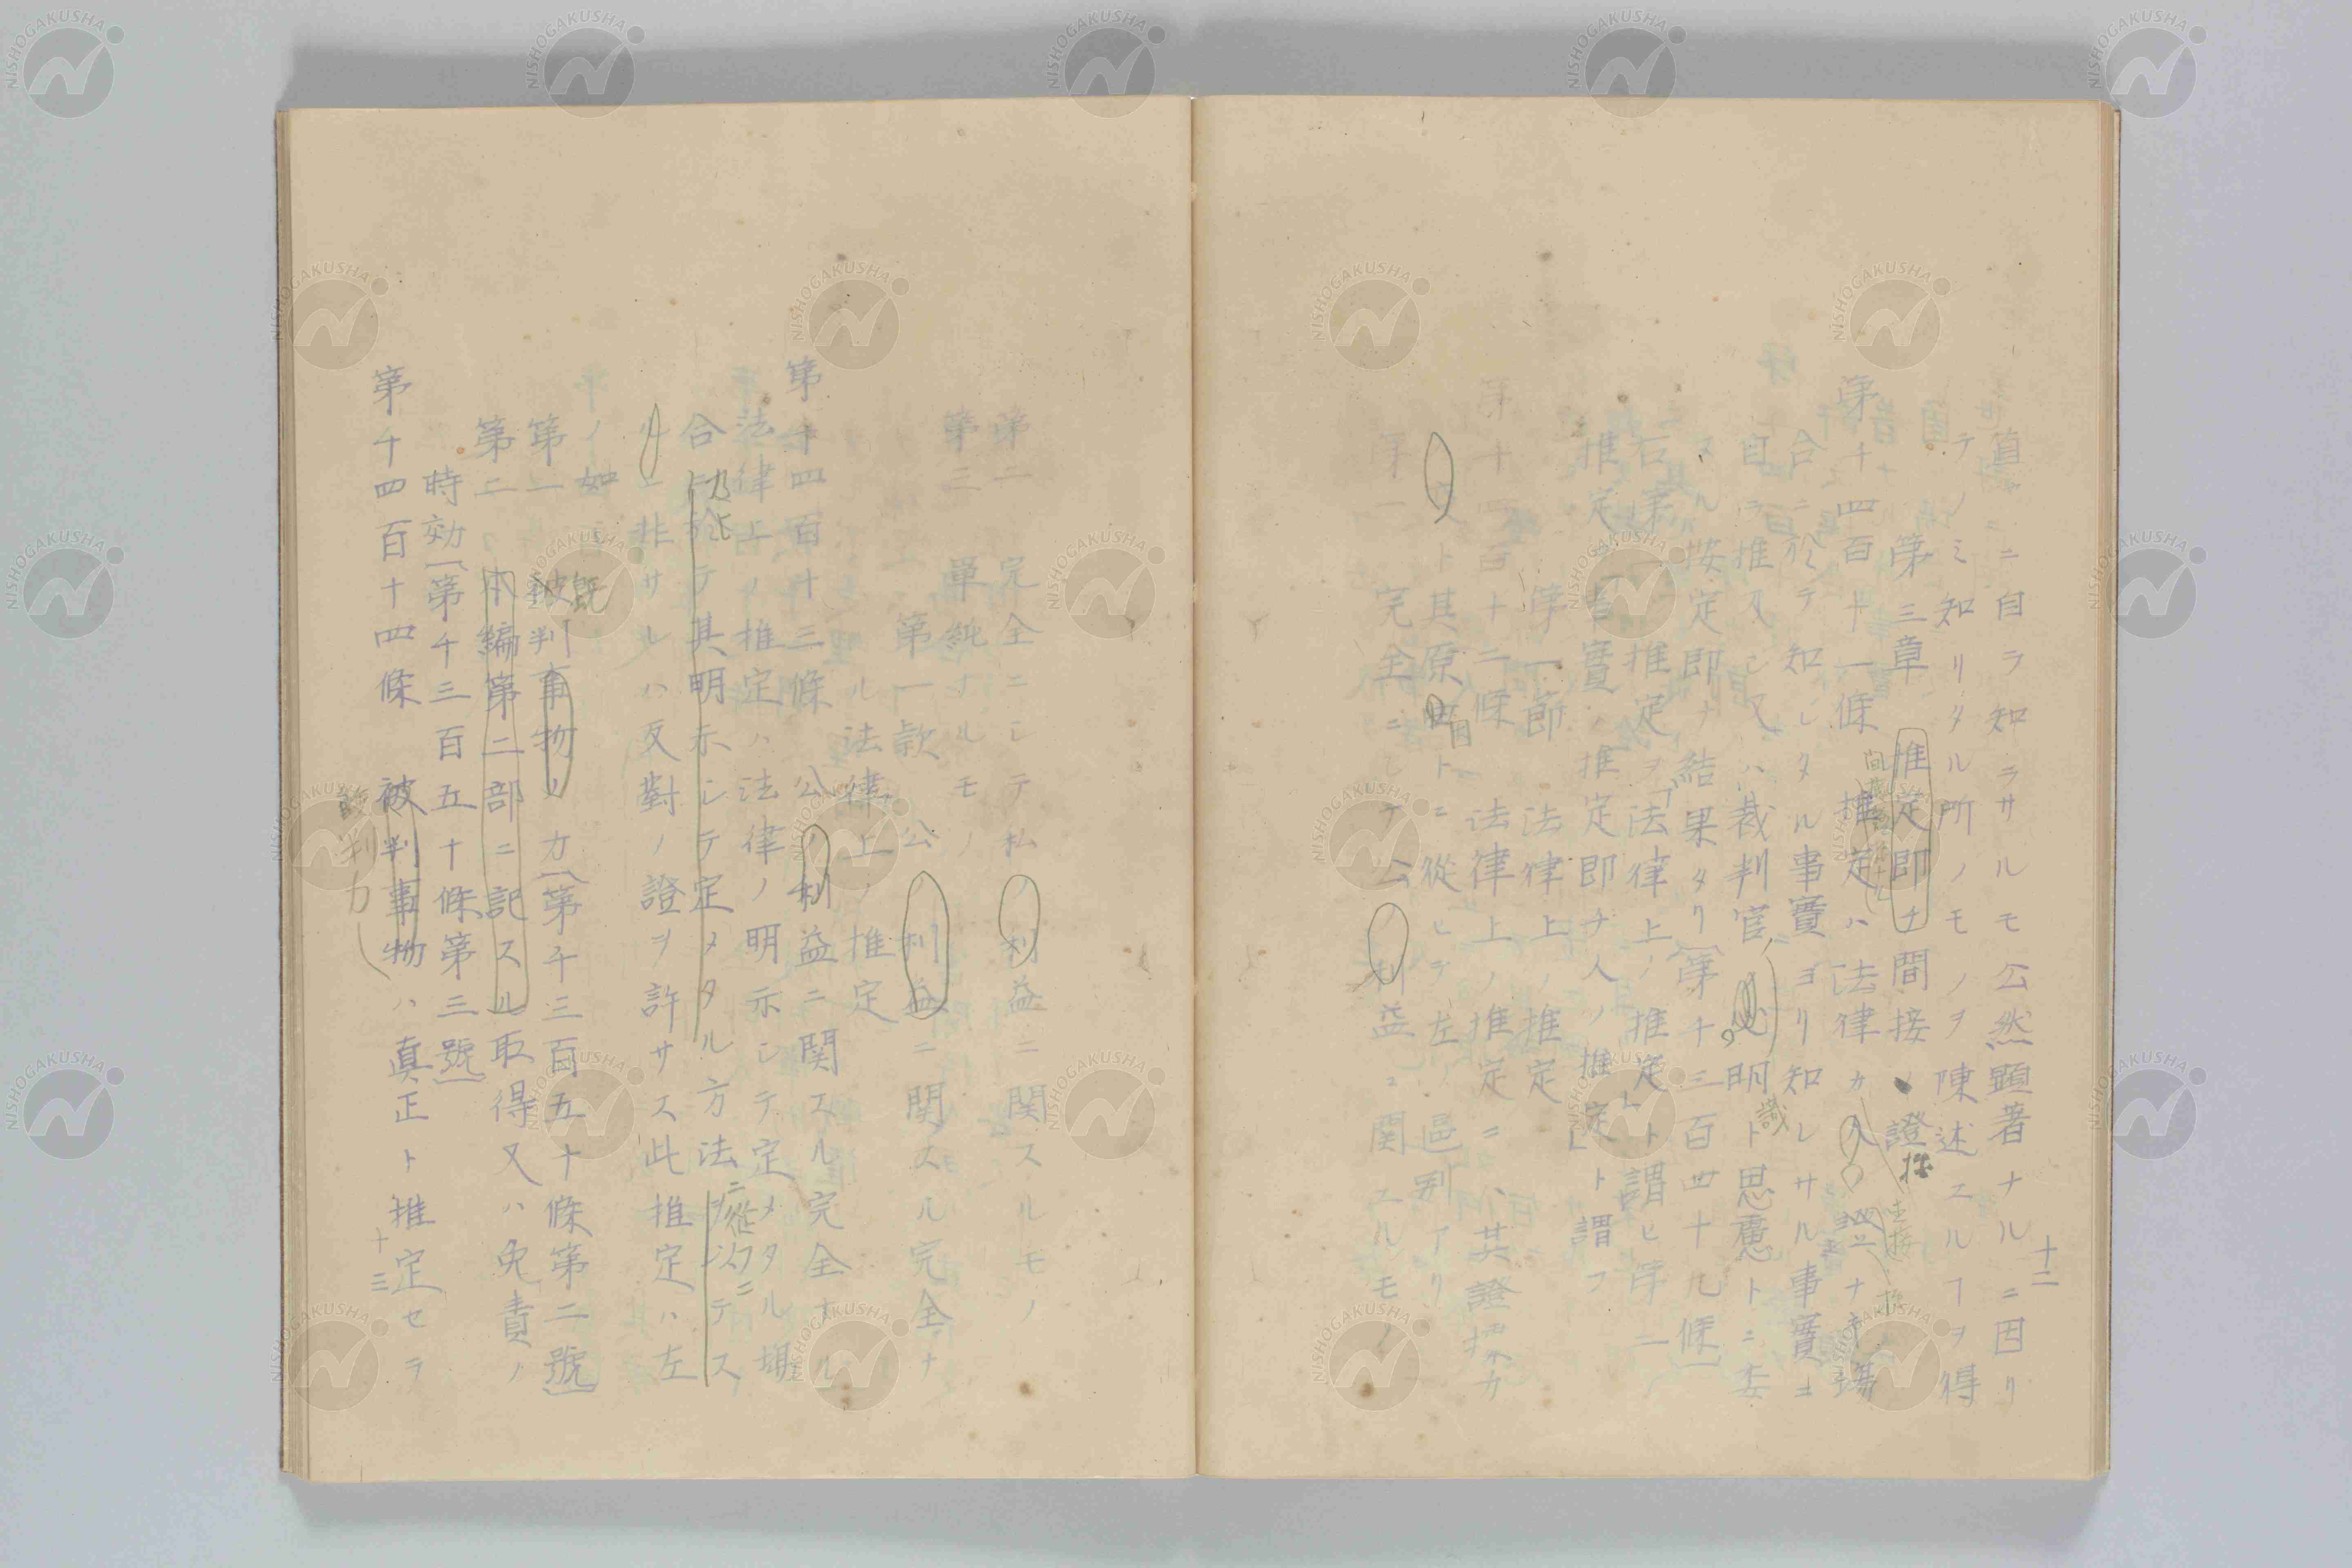 十二
直ニ自ラ知ラサルモ公然顕著ナルニ因リ
テノミ知リタル所ノモノヲ陳述スルヿヲ得
第三章 推定即ナ間接ノ證拠
第千四百十一條 推定ハ法律カ
合ニ於テ知レタル事實ヨリ知レサル事實ニ
自ラ推及シ又ハ裁判官 明ト思慮トニ委
タル按定即ナ結果タリ(第千三百四十九條)
右第一ノ推定ヲ「法律上ノ推定」ト謂ヒ第二ノ
推定ヲ「事實ノ推定即チ人ノ推定」ト謂フ
第一節 法律上ノ推定
第千四百十二條 法律上ノ推定ニハ其證據カ
ト其原由トニ從ヒテ左ノ區別アリ
因
第一 完全ニシテ公ノ利益ニ関スルモノ
第二 完全ニシテ私ノ利益ニ関スルモノ
第三 單純ナルモノ
第一款 公ノ利益ニ関スル完全ナ
ル法律上ノ推定
第千四百十三條 公ノ利益ニ関スル完全ナル
法律上ノ推定ハ法律ノ明示シテ定メタル場
合ニ於テ其明示シテ定メタル方法ヲ以テス
ルニ非サレハ反對ノ證ヲ許サス此推定ハ左
ノ如シ
第一 被判事物ノ力(第千三百五十條第二號)
既
第二 本編第二部ニ記スル取得又ハ免責ノ
時効(第千三百五十條第三號)
第千四百十四條 被判事物ハ真正ト推定セラ
判力
十三
NISHOGAKUSHA